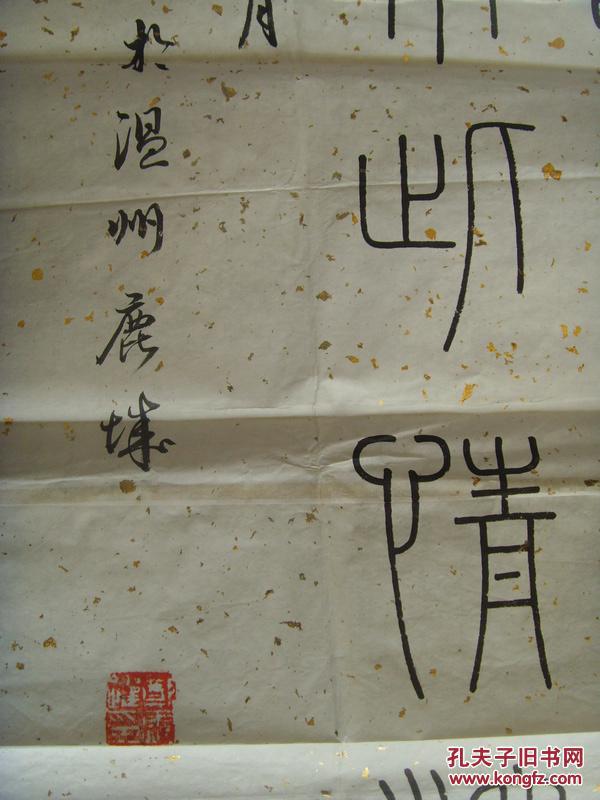 此情
於温州鹿城
孔夫子旧书网
www.kongfz.com